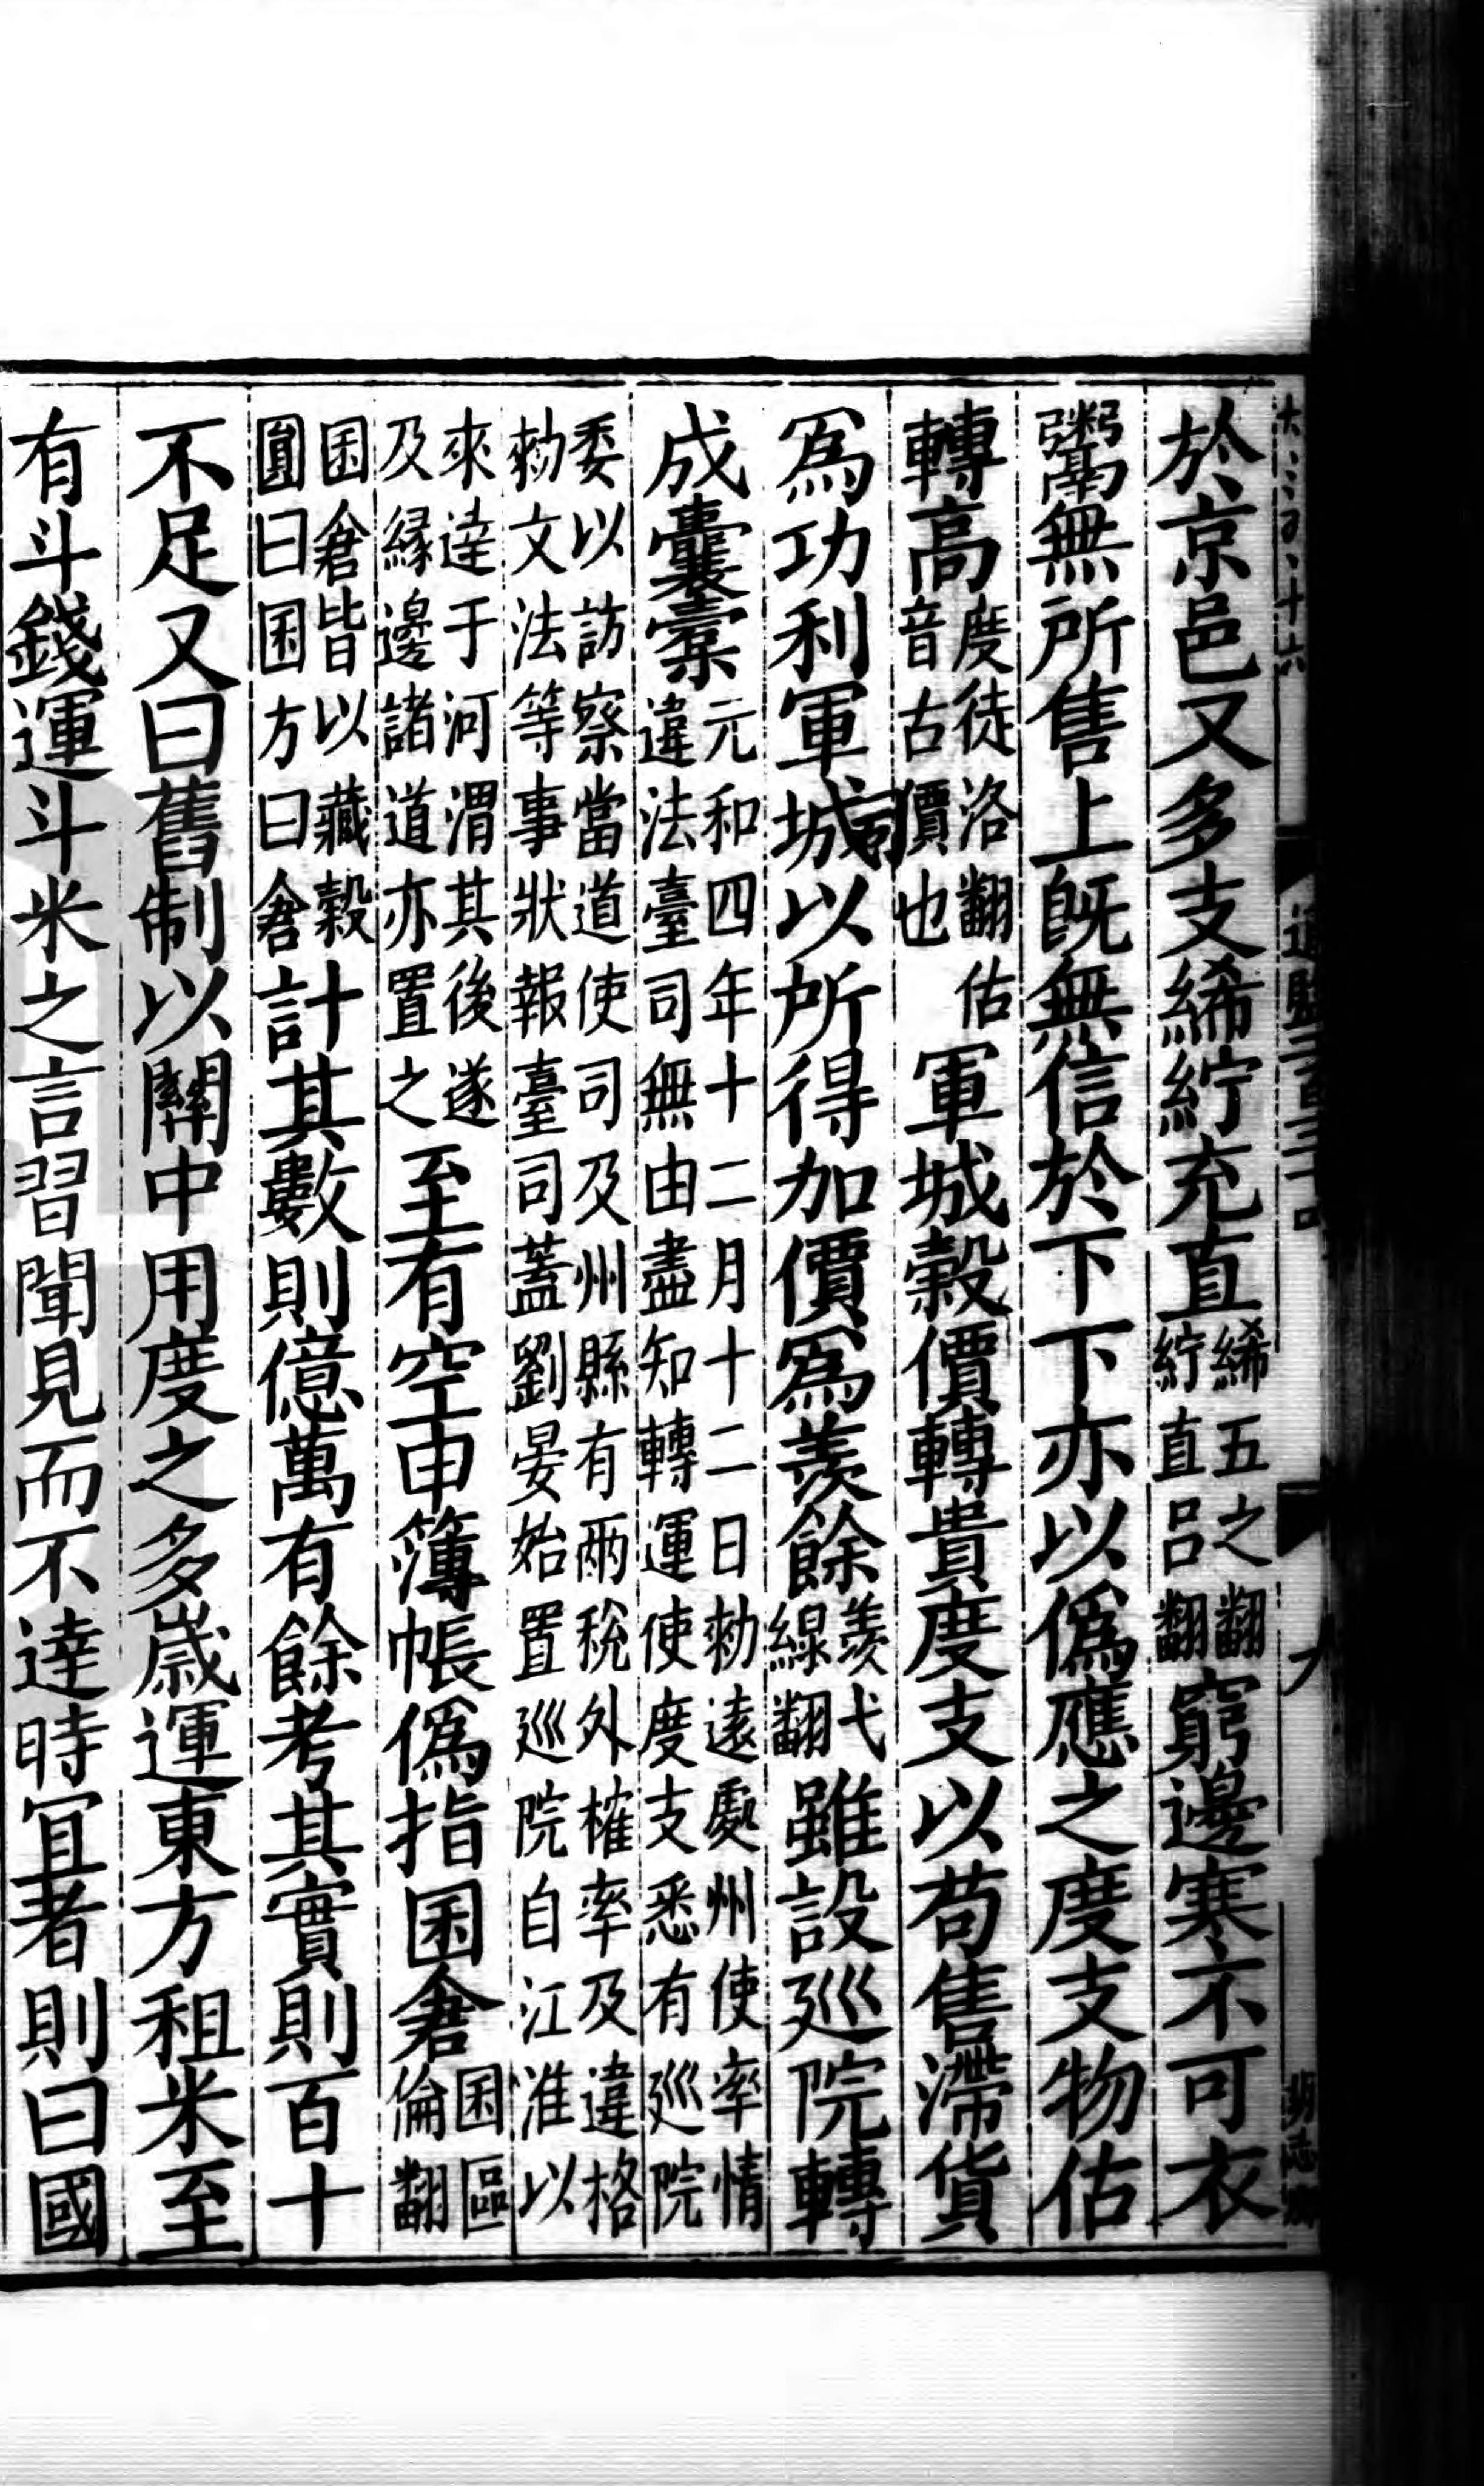 於京邑又多支絺紵充直絺五之翻紵直呂翻窮邊寒不可衣
鬻無所售上旣無信於下下亦以僞應之度支物估
轉高度徒洛翻估音古價也軍城穀價轉貴度支以苟售滯貨
爲功利軍城以所得加價爲羨餘羨弋線翻雖設廵院轉
成囊橐元和四年十二月十二日勑遠處州使率情違法臺司無由盡知轉運使度支悉有廵院
委以訪察當道使司及州縣有兩稅外榷率及違格勑文法等事狀報臺司蓋劉晏始置巡院自江淮以
來達于河渭其後遂及縁邊諸道亦置之至有空申簿帳僞指囷倉囷區倫翻
囷倉皆以藏穀圓曰囷方曰倉計其數則億萬有餘考其實則百十
不足又曰舊制以關中用度之多歲運東方租米至
有斗錢運斗米之言習聞見而不達時宜者則曰國